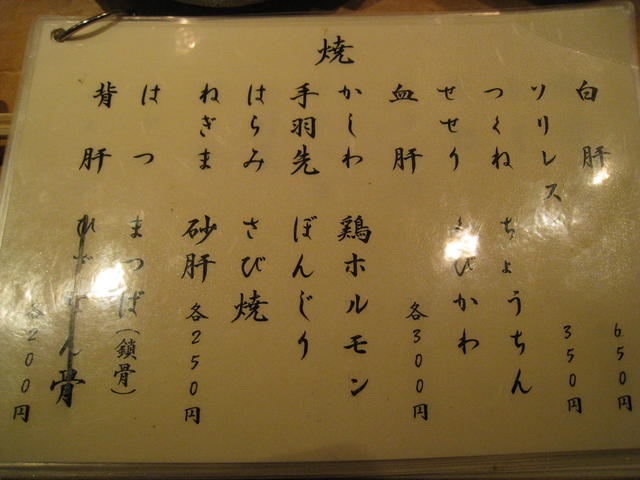 焼
白肝 650円
ソリレス 350円
つくね ちょうちん
せせり くびかわ
血肝 各300円
かしわ 鶏ホルモン
手羽先 ぼんじり
はらみ さび焼
ねぎま 砂肝 各250円
はつ まつば(鎖骨)
背肝 ひざなん骨
各200円